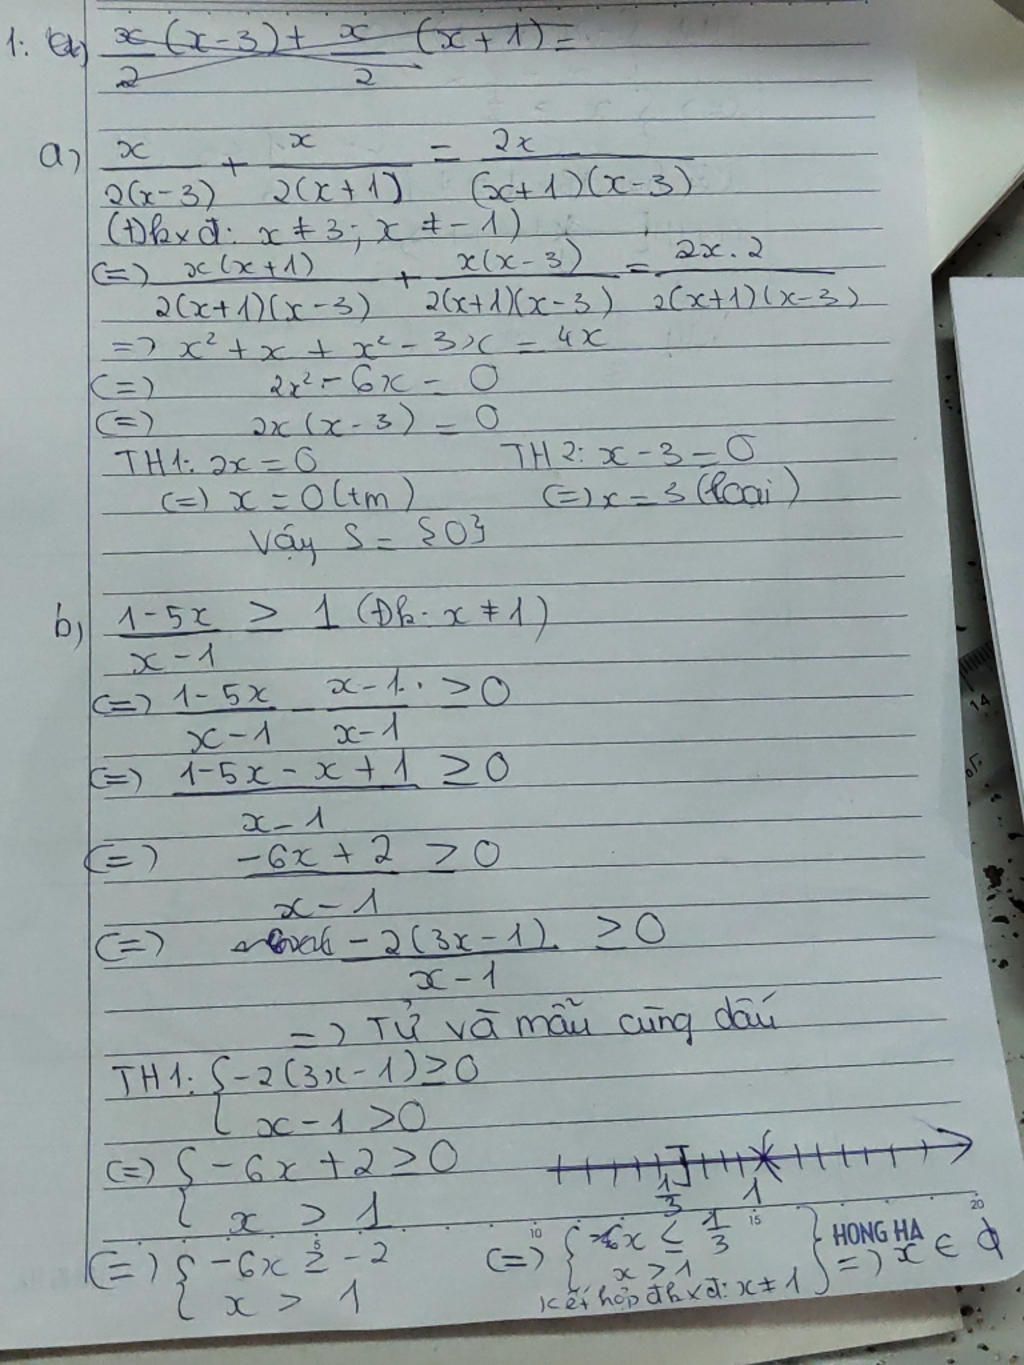 1: a) x/2 (x-3) + x/2 (x+1) =
a) x/2(x-3) + x/2(x+1) = 2x/(x+1)(x-3)
(Đkxđ: x ≠ 3; x ≠ -1)
(=) x(x+1)/2(x+1)(x-3) + x(x-3)/2(x+1)(x-3) = 2x.2/2(x+1)(x-3)
=> x² + x + x² - 3x = 4x
(=) 2x² - 6x = 0
(=) 2x(x-3) = 0
TH1: 2x = 0 TH2: x-3 = 0
(=) x = 0 (tm) (=) x = 3 (loại)
Vậy S = {0}
b) 1-5x/x-1 ≥ 1 (Đk: x ≠ 1)
(=) 1-5x/x-1 - x-1/x-1 ≥ 0
(=) 1-5x-x+1/x-1 ≥ 0
(=) -6x+2/x-1 ≥ 0
(=) -2(3x-1)/x-1 ≥ 0
=> Tử và mẫu cùng dấu
TH1: { -2(3x-1) ≥ 0
{ x-1 > 0
(=) { -6x+2 ≥ 0
{ x > 1
1/3 1
(=) { -6x ≥ -2
{ x > 1
(=) { x ≤ 1/3
x > 1
Kết hợp đkxđ: x ≠ 1 } => x ∈ ϕ
5 10 15 20
HONG HA
14